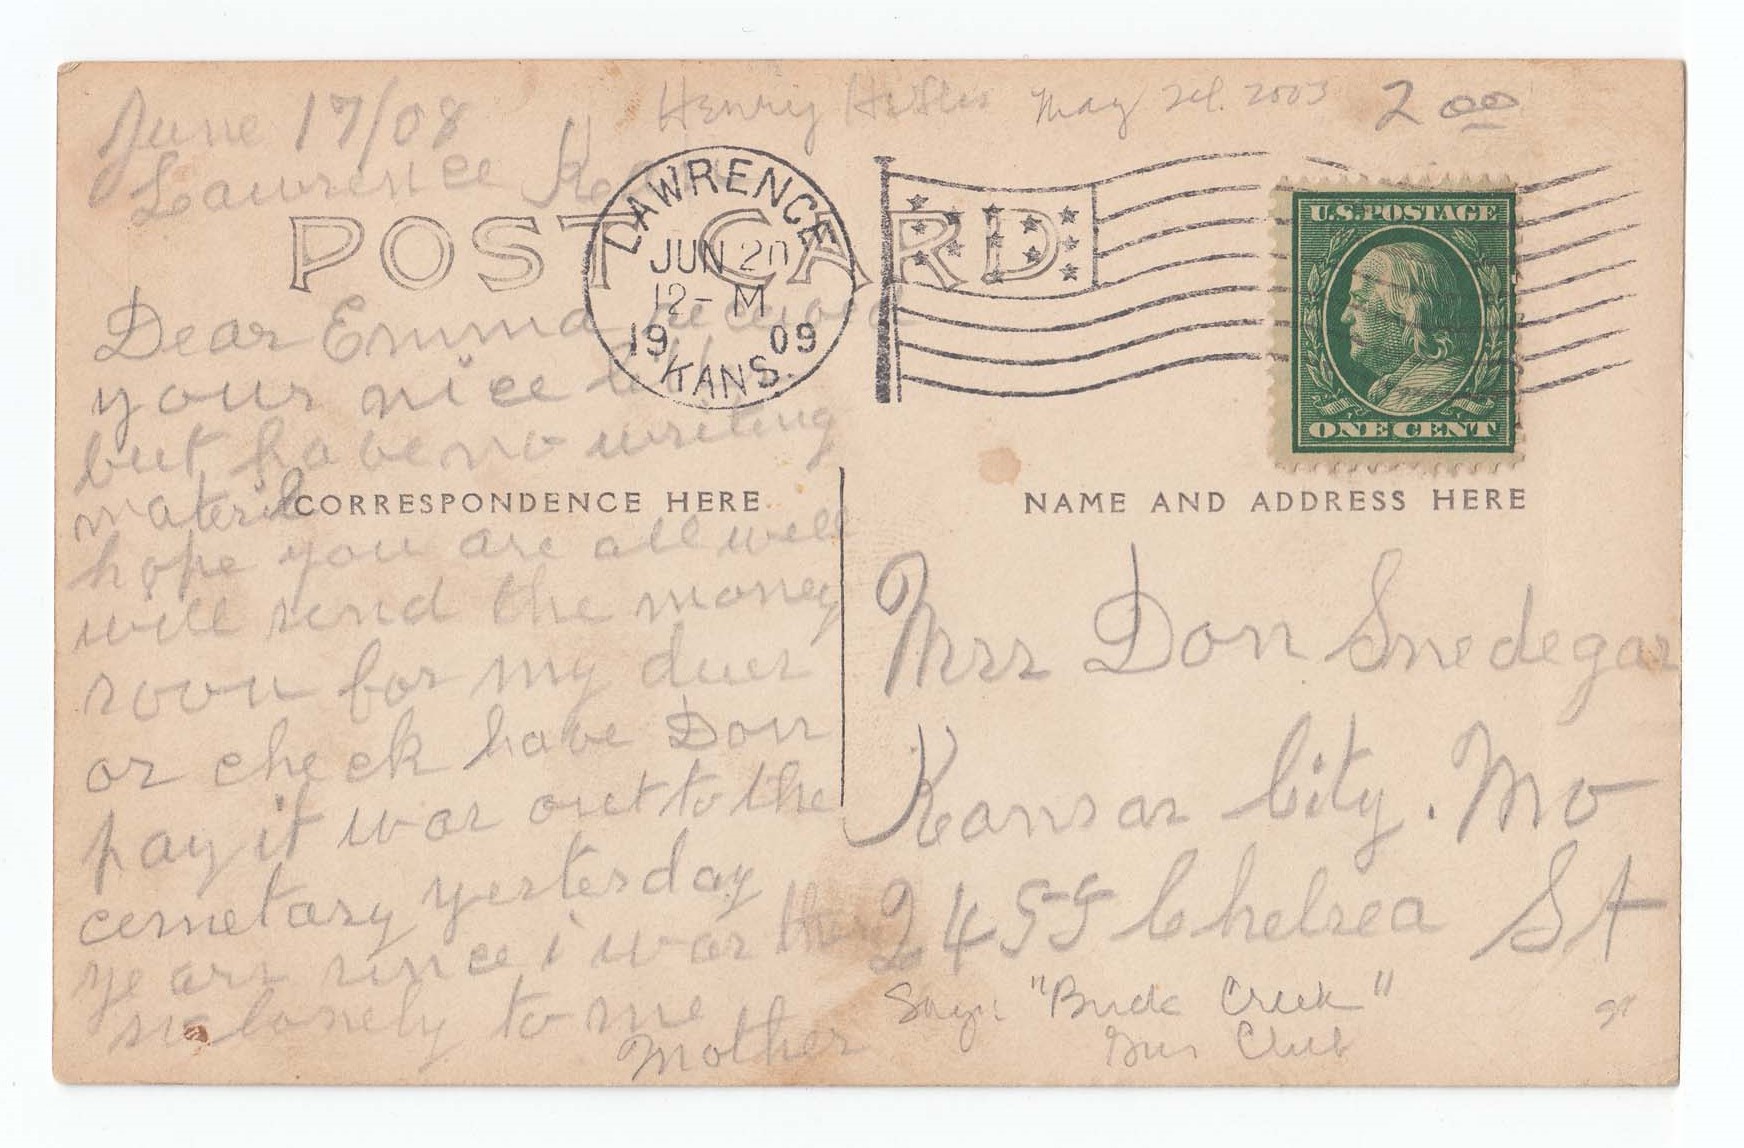 June 17/08
Henry
May 2003
2 00
Lawrence
POST CARD
LAWRENCE
JUN 20
12- M
19 09
KANS.
U.S. POSTAGE
ONE CENT
Dear Emma
your nice
but have no writing
materil
hope you are all well
will send the money
soon for my dues
or check have Don
pay it was out to the
cemetary yesterday
years since i was
so lonely to me
Mother
CORRESPONDENCE HERE
NAME AND ADDRESS HERE
Mrs Don Snedegar
Kansas City. Mo
2455 Chelsea St
Says "Buck Creek"
Gun Club